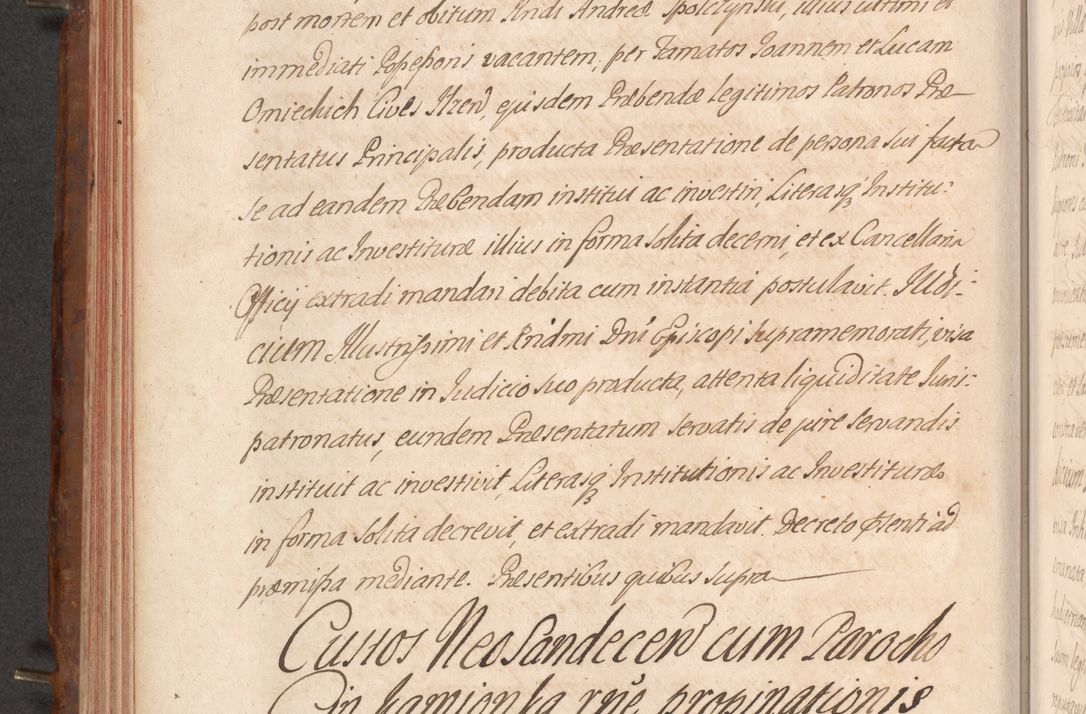 post mortem et obitum Rndi Andreæ Spolczynski, illius ultimi et
immediati Possessoris vacantem, per Famatos Joannem et Lucam
Omiechich Cives Ilzen, ejusdem Præbendæ legitimos Patronos Præ-
sentatus Principalis, producta Præsentatione de persona sui facta
se ad eandem Præbendam institui ac investiri, Literasq3 Institu-
tionis ac Investituræ illius in forma solita decerni, et ex Cancellaria
Officij extradi mandari debita cum instantia postulavit. Judi-
cium Illustrissimi et Rndmi Dni Episcopi supramemorati, visa
Præsentatione in Judicio suo producta, attenta liquiditate Juris-
patronatus, eundem Præsentatum servatis de jure servandis
instituit ac investivit, Literasq3 Institutionis ac Investituræ
in forma solita decrevit, et extradi mandavit. Decreto ptenti ad
præmissa mediante. Præsentibus quibus supra
Custos NeoSandecen cum Parocho
in Kamionka rne propinationis